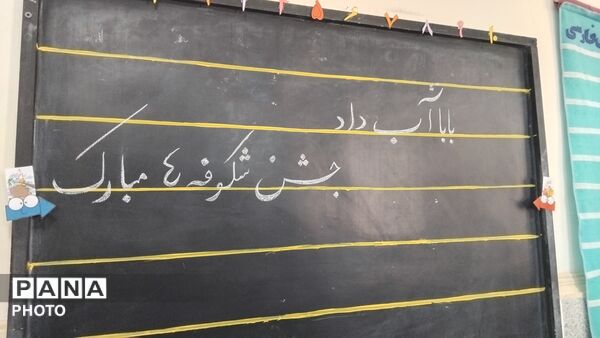 بابا آب داد
جشن شکوفه ها مبارک
فارسی
PANA
PHOTO